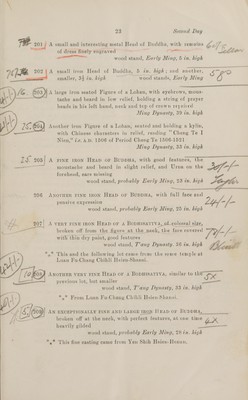 23 Second Day
201 A small and interesting metal Head of Buddha, with remains
of dress finely engraved
wood stand, Early Ming, 5 in. high
202 A small iron Head of Buddha, 5 in. high; and another,
smaller, 3½ in. high wood stands, Early Ming
203 A large iron seated Figure of a Lohan, with eyebrows, mous-
tache and beard in low relief, holding a string of prayer
beads in his left hand, neck and top of crown repaired
Ming Dynasty, 39 in. high
204 Another iron Figure of a Lohan, seated and holding a
with Chinese characters in relief, reading "Cheng Te I
Nien," i.e. A.D. 1506 of Period Chang Te 1506-1521
Ming Dynasty, 35 in. high
25 205 A FINE IRON HEAD OF BUDDHA, with good features, the
moustache and beard in slight relief, and Urna on the
forehead, ears missing
wood stand, probably Early Ming, 19 in. high
206 ANOTHER FINE IRON HEAD OF BUDDHA, with full face and
pensive expression
wood stand, probably Early Ming, 20 in. high
207 A VERY FINE IRON HEAD OF A BODHISATTVA, of colossal size,
broken off from the figure at the neck, the face covered
with thin dry paint, good features
wood stand, T'ang Dynasty, 36 in. high
*** This and the following lot come from the same temple at
Luan Fu Chang Chihli Hsien-Shansi.
ANOTHER VERY FINE HEAD OF A BODHISATTVA, similar to the
previous lot, but smaller
wood stand, T'ang Dynasty, 33 in. high
*** From Luan Fu Chang Chihli Hsien-Shansi.
AN EXCEPTIONALLY FINE AND LARGE IRON HEAD OF BUDDHA,
broken off at the neck, with perfect features, at one time
heavily gilded
wood stand, probably Early Ming, 29 in. high
*** This fine casting came from Yen Shih Hsien-Honan.